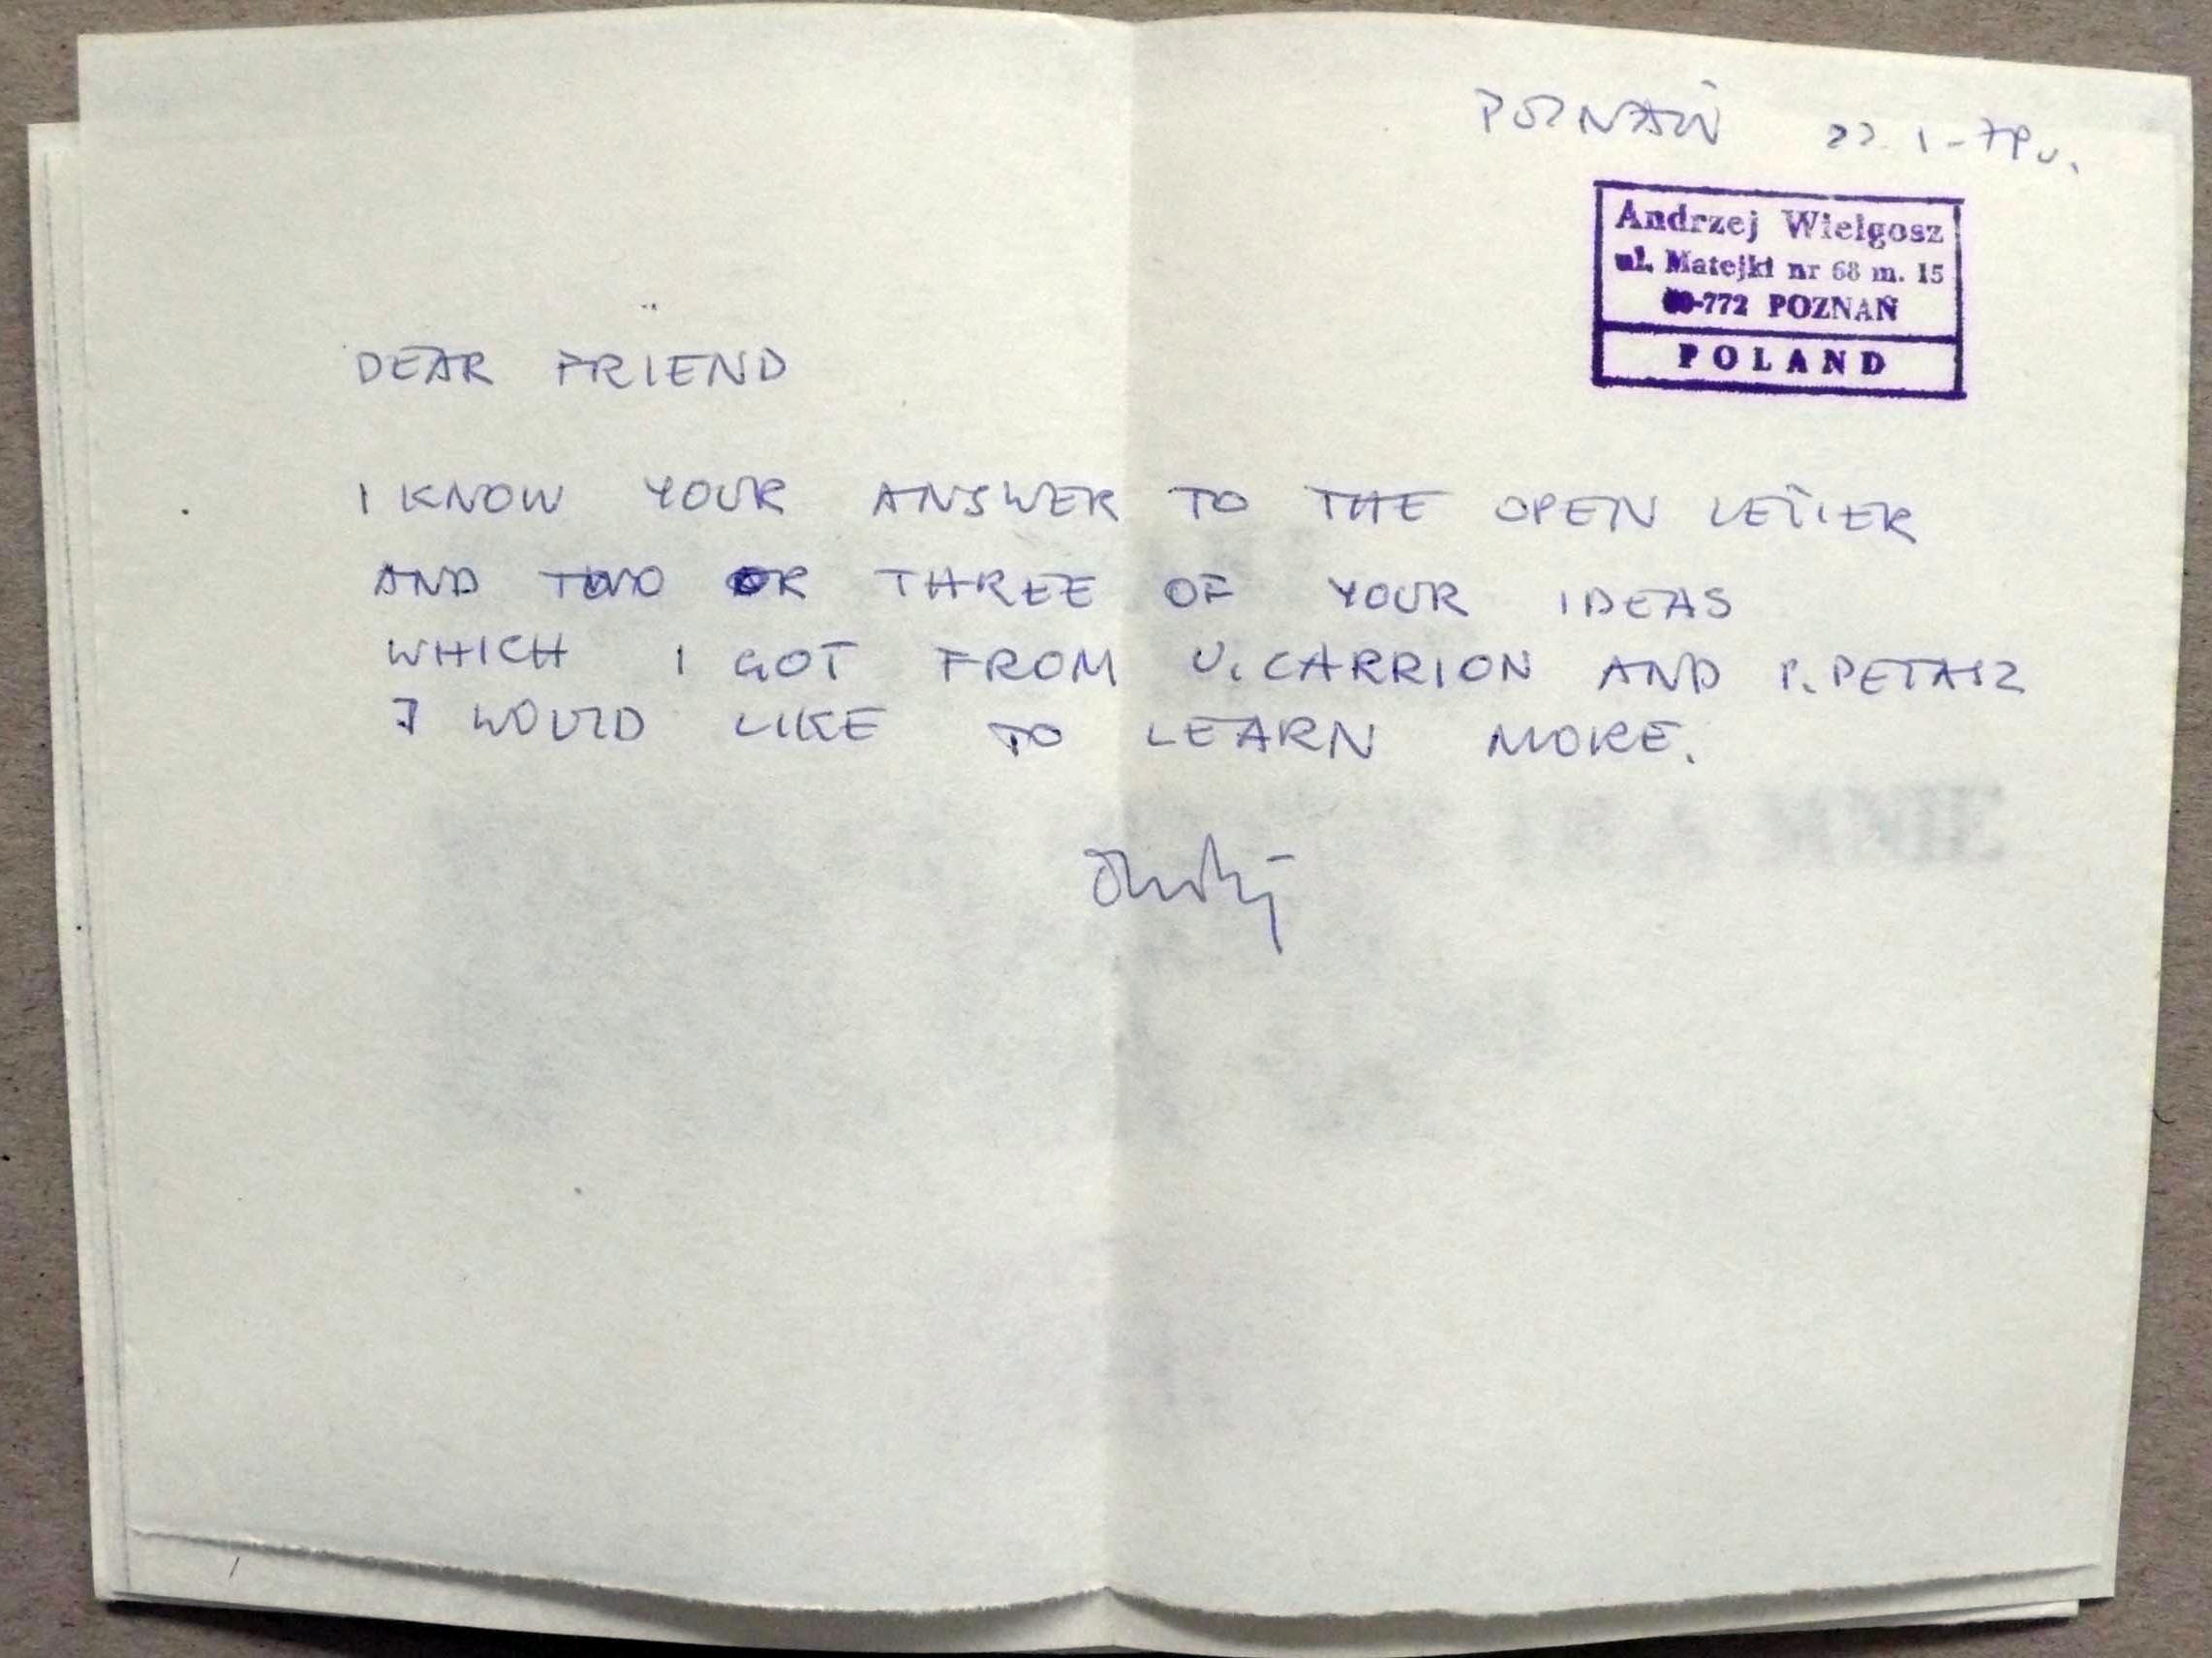 POZNAŃ 22.I-79r.
Andrzej Wielgosz
ul. Matejki nr 68 m. 15
-772 POZNAŃ
POLAND
DEAR FRIEND
I KNOW YOUR ANSWER TO THE OPEN LETTER
AND TWO OR THREE OF YOUR IDEAS
WHICH I GOT FROM U. CARRION AND P. PETASZ
I WOULD LIKE TO LEARN MORE.
Andrzej